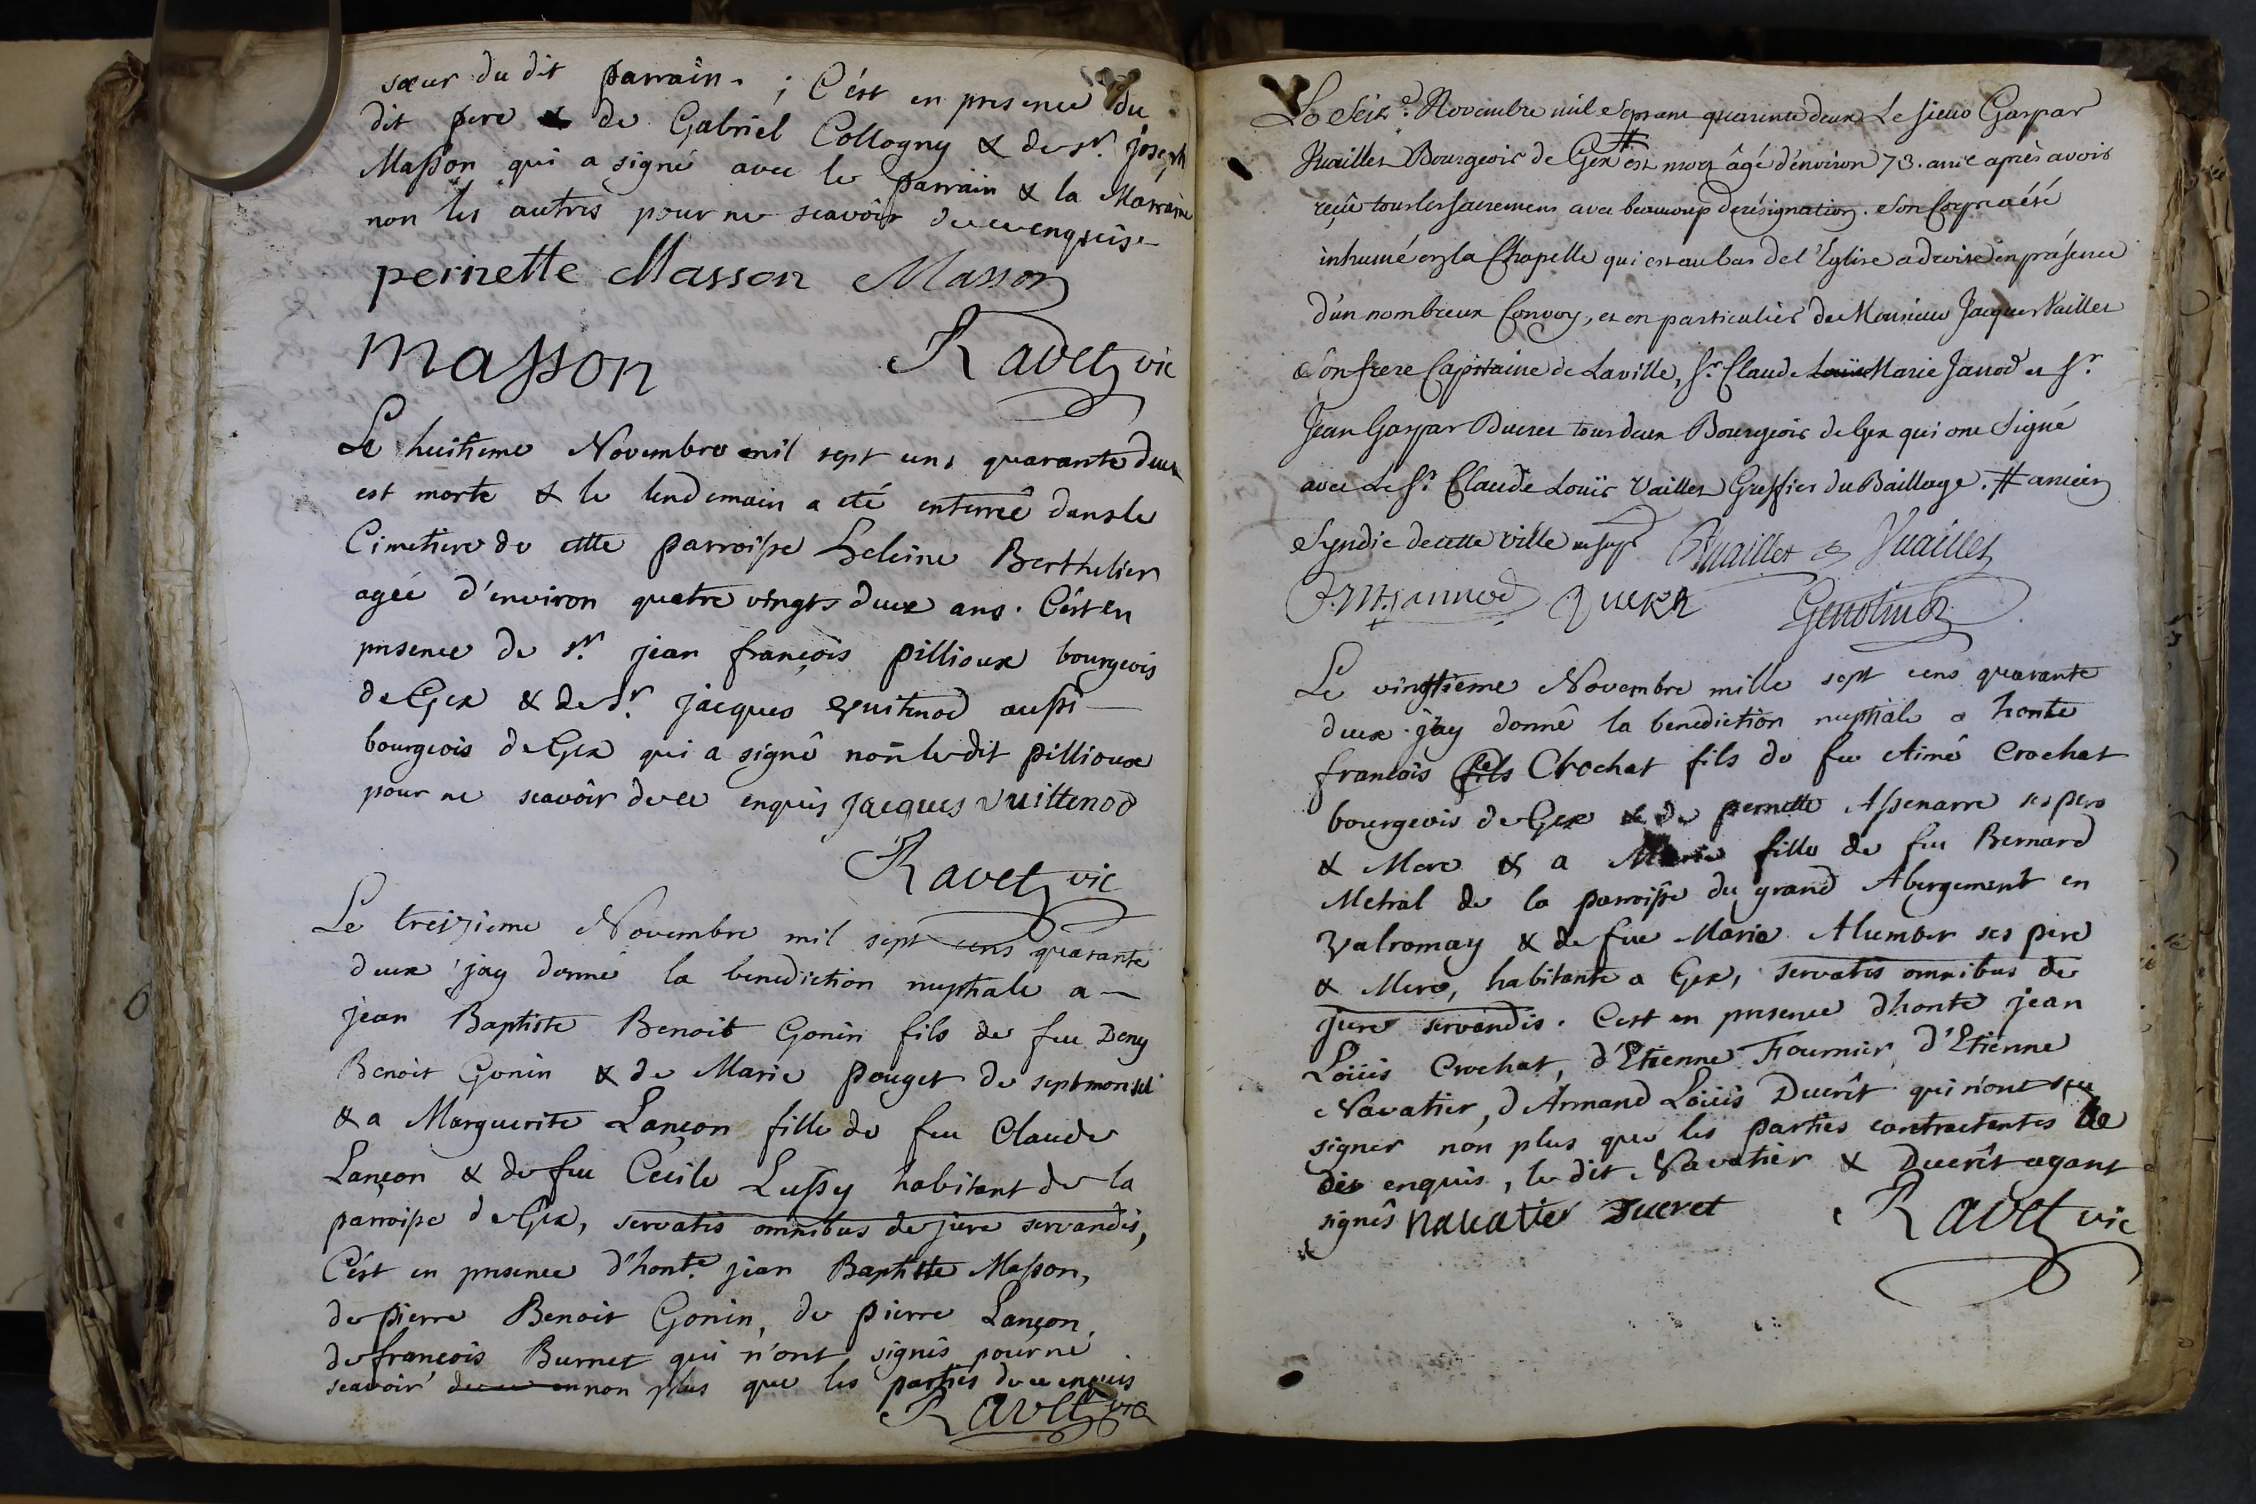 sœur du dit parrain. ; C'ést en presence du
dit pere & de Gabriel Collogny & de Sr. joseph
Masson qui a signé avec le parrain & la Marraine
non les autres pour ne scavoir de ce enquis.
pernette Masson Masson
masson Ravet vic
Le huitieme Novembre mil sept cens quarante deux
est morte & le lendemain a eté enterreê dans le
Cimetiere de cette parroisse heleine Berthelier
agéé d'environ quatre vingts deux ans. C'ést en
presence de Sr. jean françois pillioux bourgeois
de Gex & de Sr. jacques vuitenod aussi
bourgeois de Gex qui a signê non le dit pillioux
pour ne scavoir de ce enquis jacques vuittenod
Ravet vic
Le treizieme Novembre mil sept cens quarante
deux j'ay donné la benediction nuptiale a
jean Baptiste Benoit Gonin fils de feu Deny
Benoit Gonin & de Marie pouget de septmoncel
& a Marguerite Lançon fille de feu Claude
Lançon & de feu Cécile Lussy habitant de la
parroisse de Gex, servatis omnibus de jure servandis,
C'ést en presence d'honte. jean Baptiste Masson,
de pierre Benoit Gonin, de pierre Lançon,
de françois Burnet qui n'ont signés pour ne
scavoir de ce en non plus que les parties de ce enquis
Ravet vic
Le Seize. Novembre mil Sept cent quarente deux Le sieur Gaspar
Vuaillet Bourgeois de Gex # est mort âgé d'énviron 73. ans après avoir
reçû tous les sacremens avec beaucoup de résignation. Son Corps a été
inhumé en la Chapelle qui est au bas de l'Eglise a droite en présence
d'ún nombreux Convoy, et en particulier de Monsieur Jacques Vaillet
Son frere Capitaine de La ville, Sr. Claude Louïs Marie Janod et Sr.
Jean Gaspar Ducret tous deux Bourgeois de Gex qui ont Signé
avec Le Sr. Claude Louïs Vaillet Greffier du Baillage. # ancien
Syndic de cette ville Vuaillet Vuaillet
C.M. jannod Ducret
Le vingttieme Novembre mille sept cens quarante
deux j'ay donnê la benediction nuptiale a honte
francois fils Crochat fils de feu Aimê Crochat
bourgeois de Gex & de pernette Assenarre ses pere
& Mere & a Marie fille de feu Bernard
Metral de la parroisse du grand Abergement en
Valromay & de feue Maria Alumber ses pere
& Mere, habitante a Gex, servatis omnibus de
jure servandis. C'est en presence d'honte jean
Loüis Crochat, d'Etienne Fournier, d'Etienne
Navatier, d'Armand Loüis Ducrêt qui n'ont sçu
signer non plus que les parties contractentes de
ce enquis, le dit Navatier & Ducrêt ayant
signês navatier Ducret Ravet vic